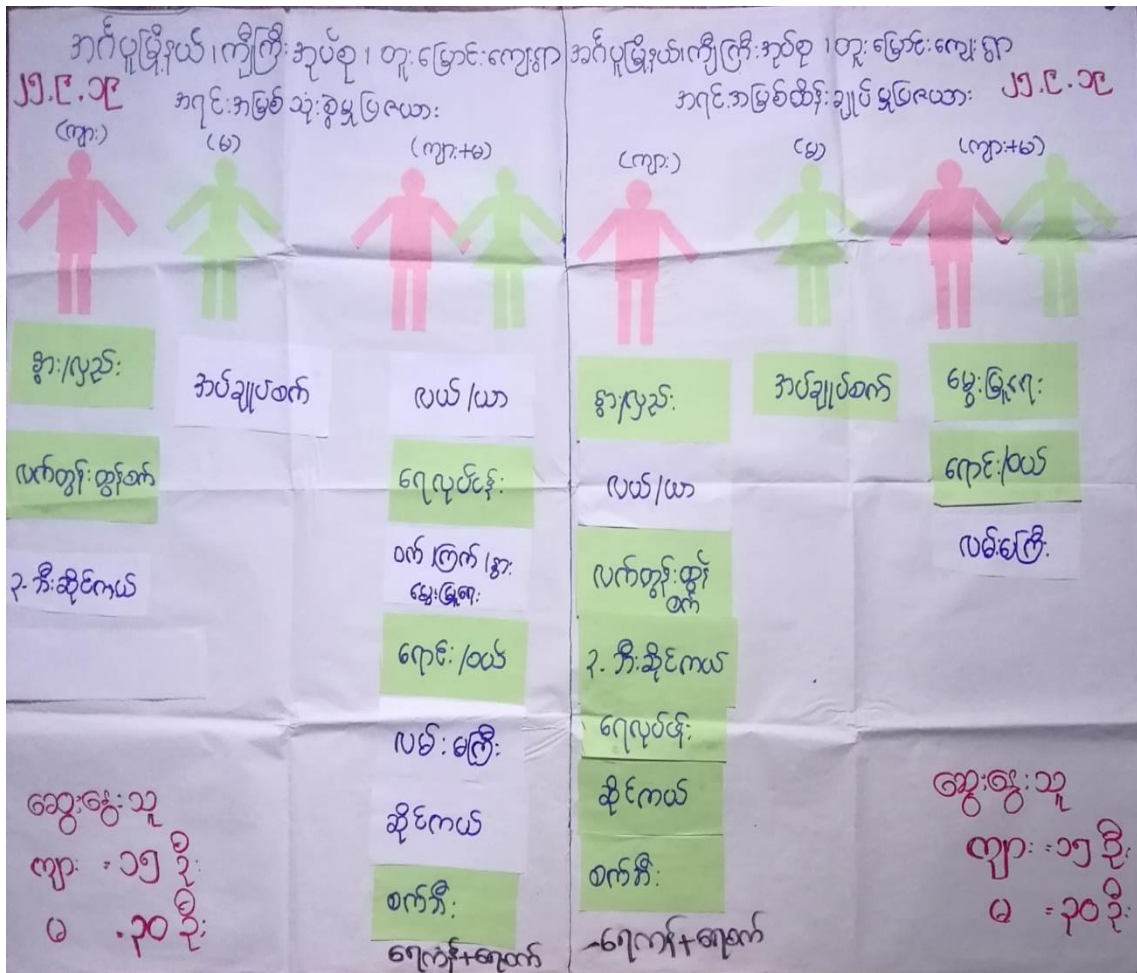 အင်္ဂပူမြို့နယ်၊ကျီကြီးအုပ်စု၊တူးမြောင်းကျေးရွာ
၂၅.၉.၁၉
အရင်းအမြစ်သုံးစွဲမှုပြဇယား
(ကျား)
(မ)
(ကျား+မ)
နွား/လှည်း
လက်တွန်းထွန်စက်
၃-ဘီးဆိုင်ကယ်
အပ်ချုပ်စက်
လယ်/ယာ
ရေလုပ်ငန်း
ဝက်/ကြက်/နွား
မွေးမြူရေး
ရောင်း/ဝယ်
လမ်းမကြီး
ဆိုင်ကယ်
စက်ဘီး
ရေကန်+ရေစက်
ဆွေးနွေးသူ
ကျား = ၁၅ ဦး
မ = ၃၀ ဦး
အင်္ဂပူမြို့နယ်၊ကျီကြီးအုပ်စု၊တူးမြောင်းကျေးရွာ
၂၅.၉.၁၉
အရင်းအမြစ်ထိန်းချုပ်မှုပြဇယား
(ကျား)
(မ)
(ကျား+မ)
နွား/လှည်း
လယ်/ယာ
လက်တွန်းထွန်
စက်
၃-ဘီးဆိုင်ကယ်
ရေလုပ်ငန်း
ဆိုင်ကယ်
စက်ဘီး
-ရေကန်+ရေစက်
အပ်ချုပ်စက်
မွေးမြူရေး
ရောင်း/ဝယ်
လမ်းမကြီး
ဆွေးနွေးသူ
ကျား = ၁၅ ဦး
မ = ၃၀ ဦး